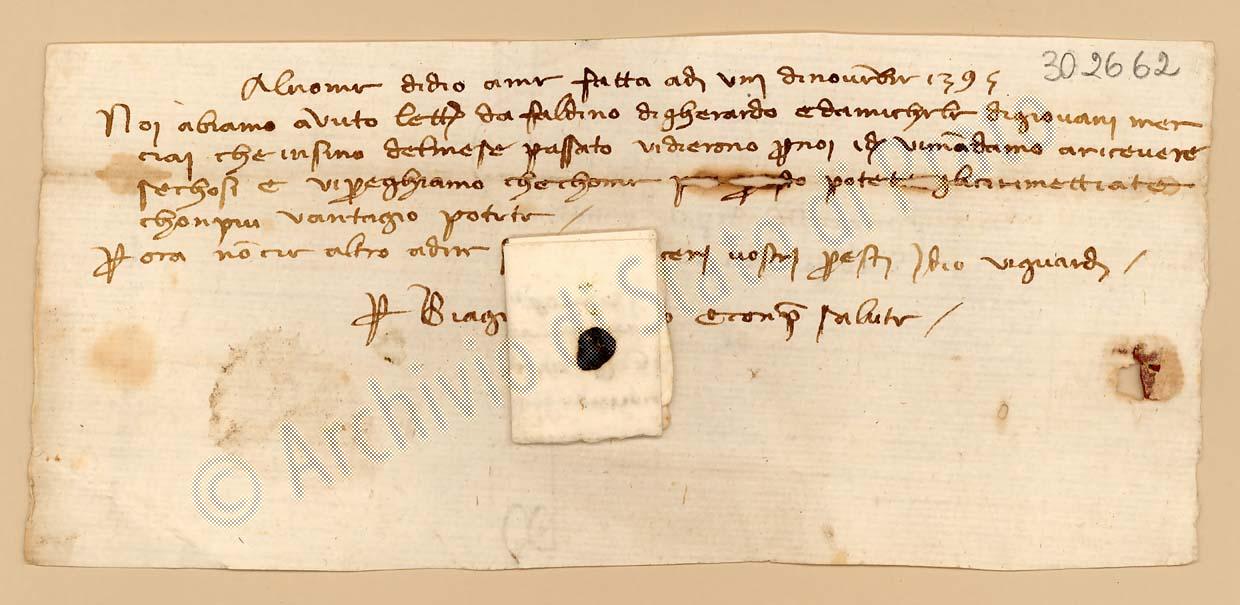 302662
Al nome didio ame fatta adi viii dinovenbr 1395
Noi abiamo avuto lett da faldino digherardo edamichele digiovani mer
ciai che insino delmese passato vidierono p noi vimandamo aricevere
sechosi e vi preghiamo chechome potete cirimettiate
chonpiu vantagio potete /
P ora nōcie altro adire ceri vostri presti Idio viguardi /
P Biagi e conp salute /
© Archivio di Stato di Prato